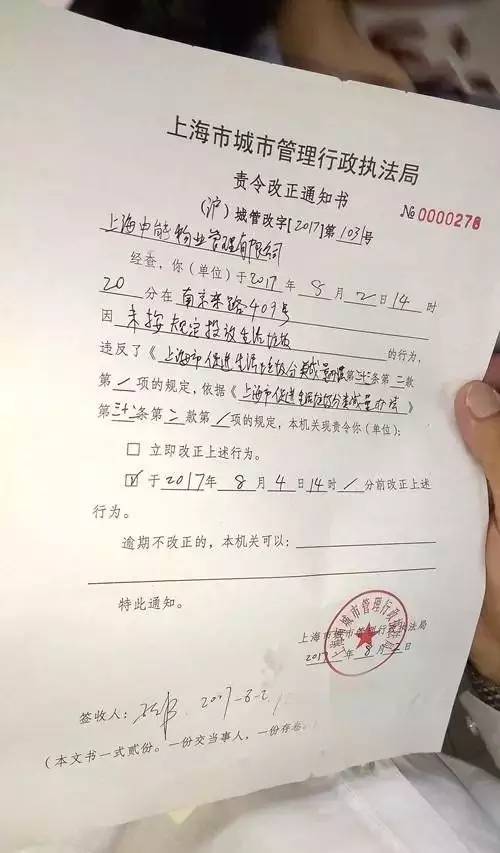 上海市城市管理行政执法局
责令改正通知书
№0000278
(沪)城管改字[2017]第1031号
上海中能物业管理有限公司
经查，你(单位)于2017年8月2日14时
20分在南京东路409号
因未按规定投放生活垃圾的行为，
违反了《上海市促进生活垃圾分类减量办法》第三十条第二款
第/项的规定，依据《上海市促进生活垃圾分类减量办法》
第三十条第二款第/项的规定，本机关现责令你(单位)：
□ 立即改正上述行为。
☑ 于2017年8月4日14时/分前改正上述
行为。
逾期不改正的，本机关可以：
特此通知。
上海市城市管理行政执法局
2017年8月2日
签收人： 2017-8-2
(本文书一式贰份。一份交当事人，一份存卷。